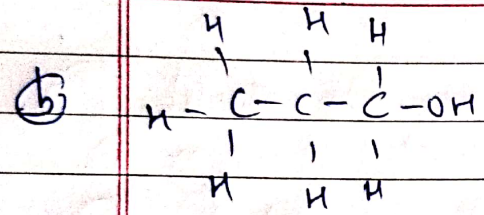 H H H
(b) H - C - C - C - OH
H H H